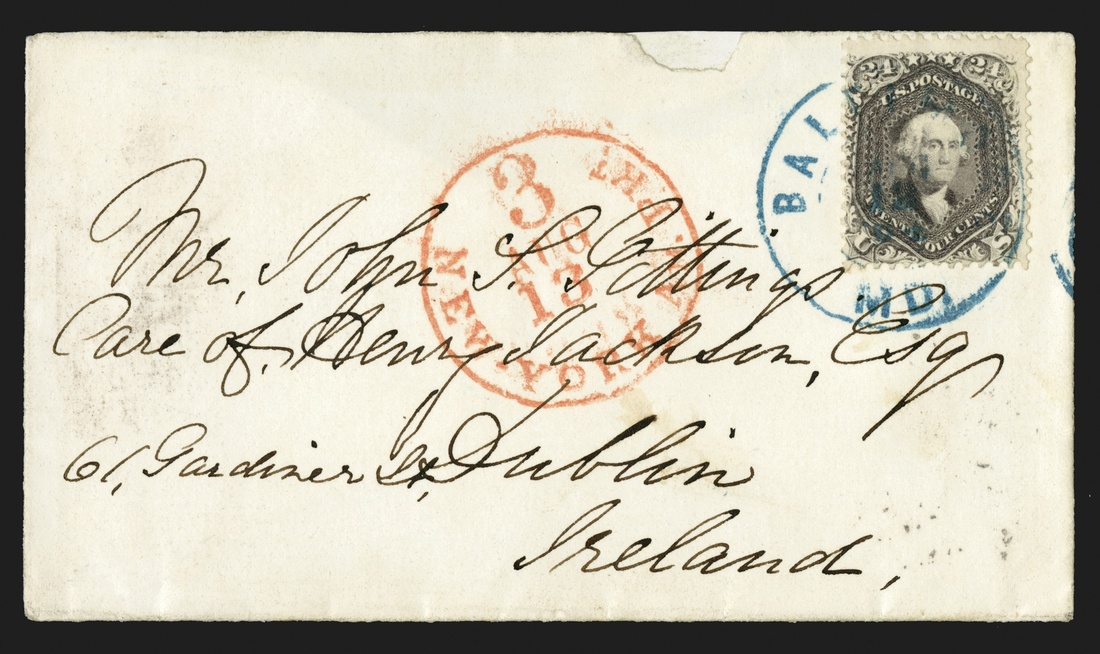 24 24
U.S. POSTAGE
TWENTY FOUR CENTS
U S
BAL
MD.
3
AUG
13
NEW YORK AM. PKT
Mr. John S. Gittings.
Care of. Henry Jackson, Esq
61, Gardiner St, Dublin
Ireland,